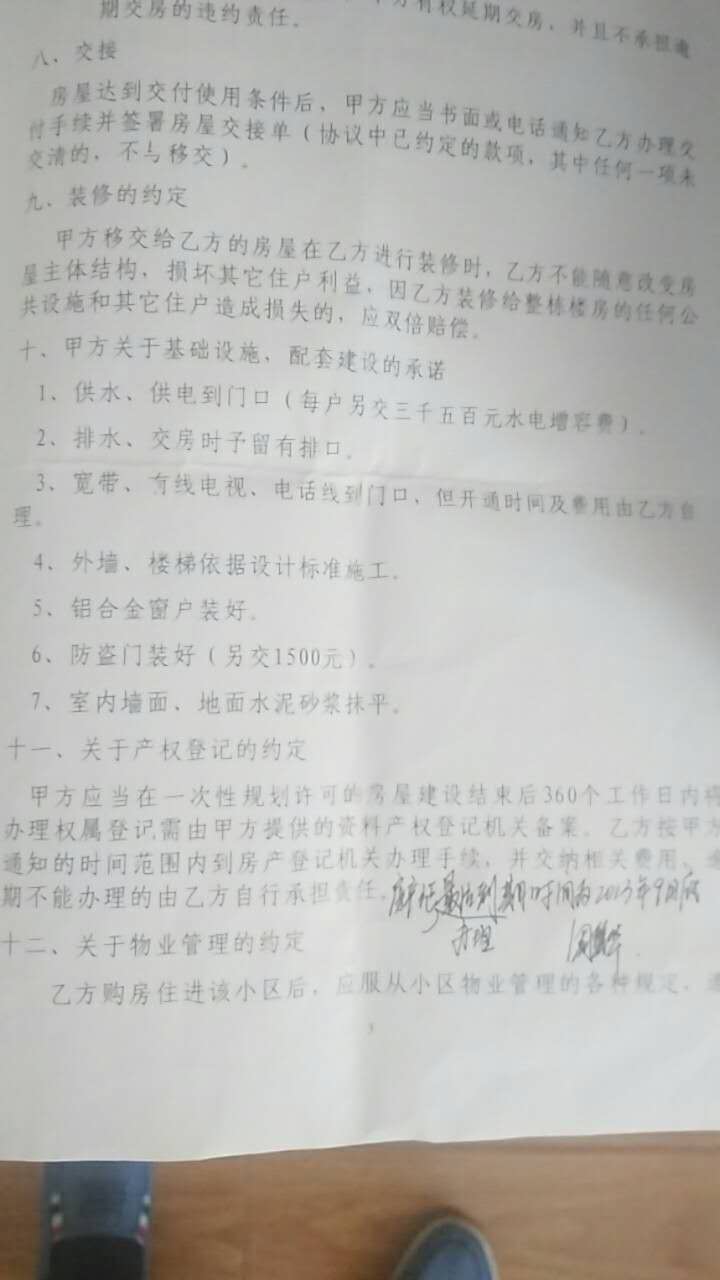 期交房的违约责任。
方有权延期交房,并且不承担逾
八、交接
房屋达到交付使用条件后,甲方应当书面或电话通知乙方办理交
付手续并签署房屋交接单(协议中已约定的款项,其中任何一项未
交清的,不与移交)。
九、装修的约定
甲方移交给乙方的房屋在乙方进行装修时,乙方不能随意改变房
屋主体结构,损坏其它住户利益,因乙方装修给整栋楼房的任何公
共设施和其它住户造成损失的,应双倍赔偿。
十、甲方关于基础设施,配套建设的承诺
1、供水、供电到门口(每户另交三千五百元水电增容费)。
2、排水、交房时予留有排口。
3、宽带、有线电视、电话线到门口,但开通时间及费用由乙方自
理。
4、外墙、楼梯依据设计标准施工。
5、铝合金窗户装好。
6、防盗门装好(另交1500元)。
7、室内墙面、地面水泥砂浆抹平。
十一、关于产权登记的约定
甲方应当在一次性规划许可的房屋建设结束后360个工作日内将
办理权属登记需由甲方提供的资料产权登记机关备案。乙方按甲方
通知的时间范围内到房产登记机关办理手续,并交纳相关费用、逾
期不能办理的由乙方自行承担责任。
最后到期时间为2013年9月底
办理
十二、关于物业管理的约定
乙方购房住进该小区后,应服从小区物业管理的各种规定,遵
3